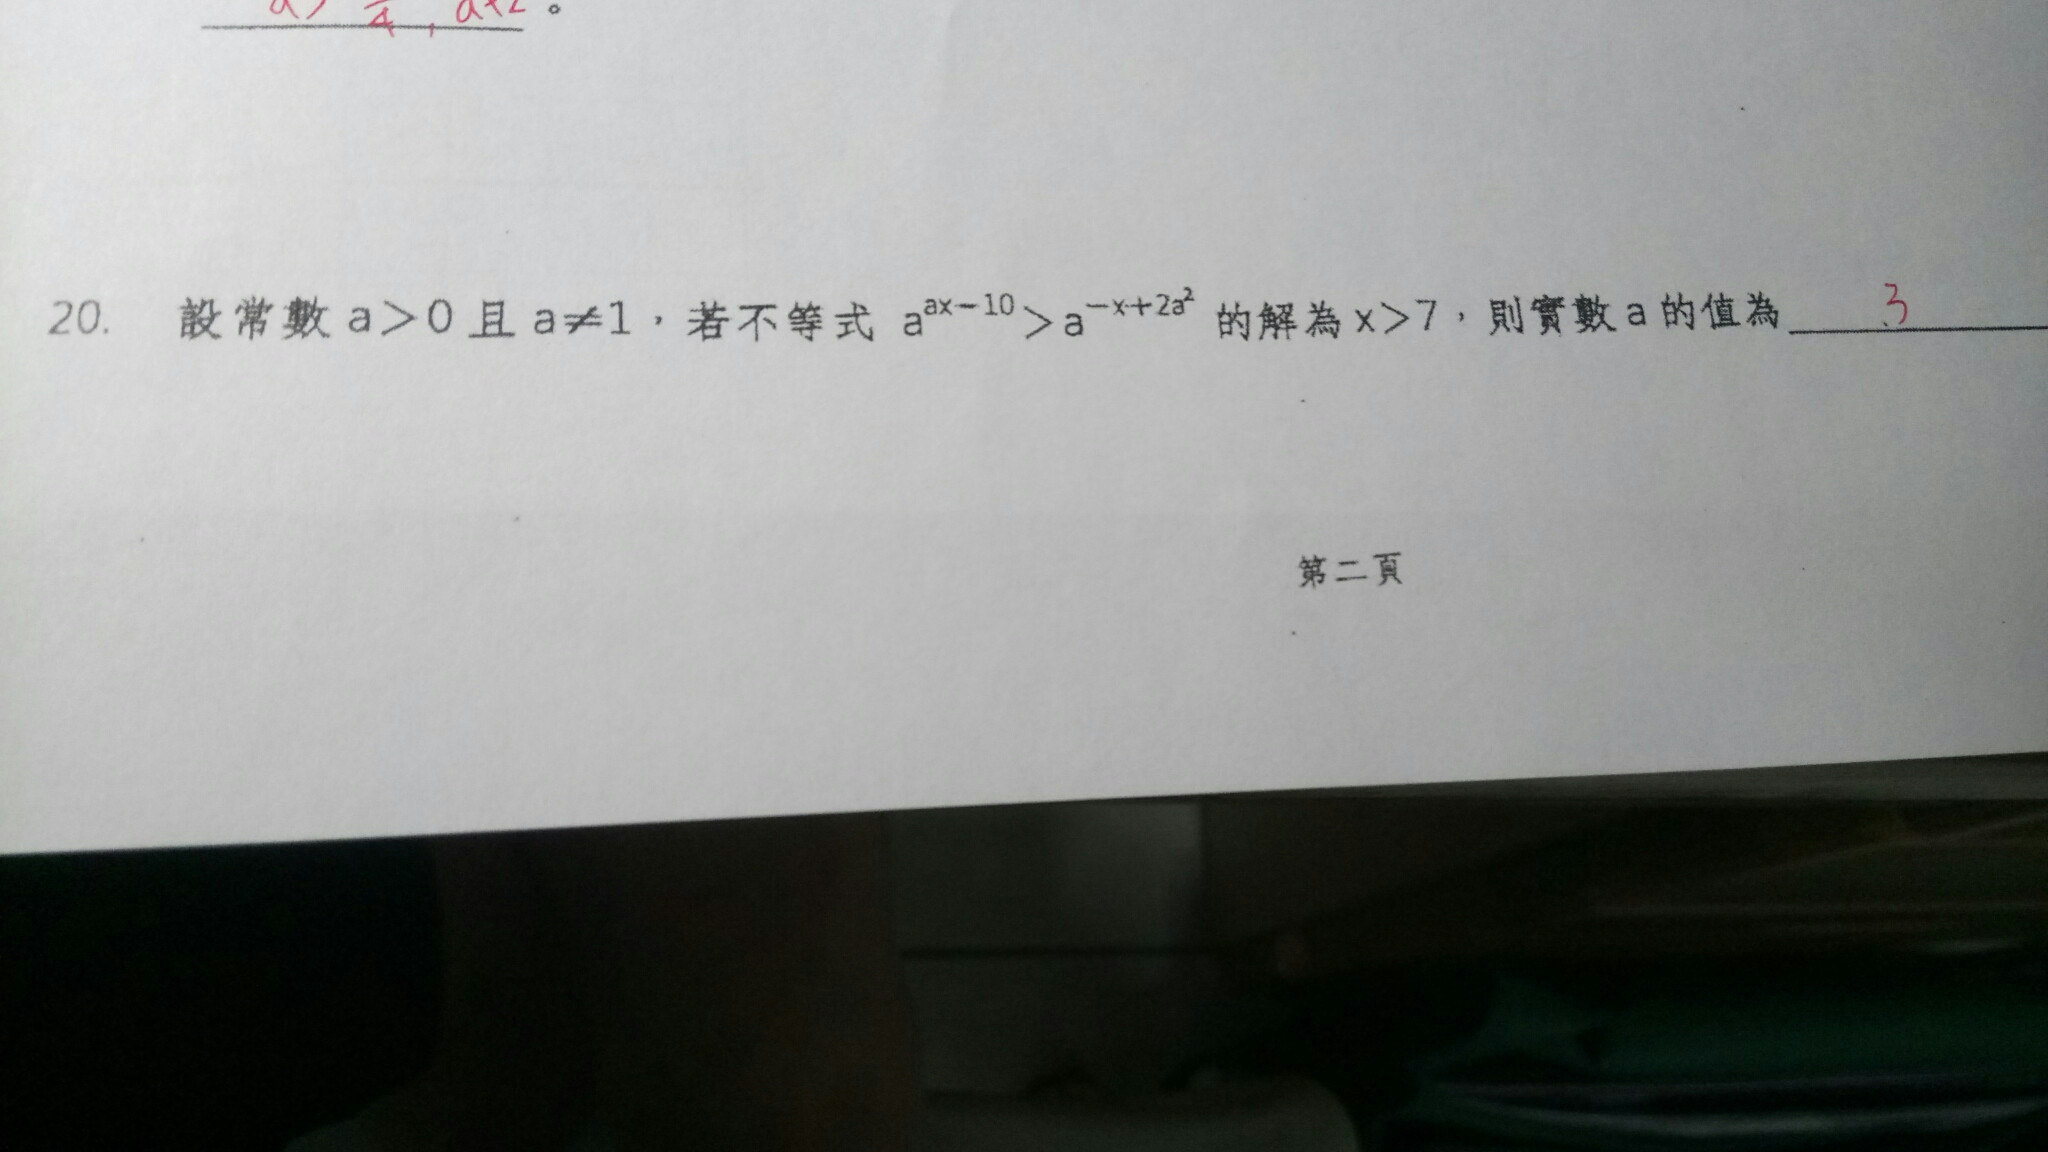 20. 設常數 a＞0 且 a≠1，若不等式 a^{ax−10}＞a^{−x+2a²} 的解為 x＞7，則實數 a 的值為 3
第二頁